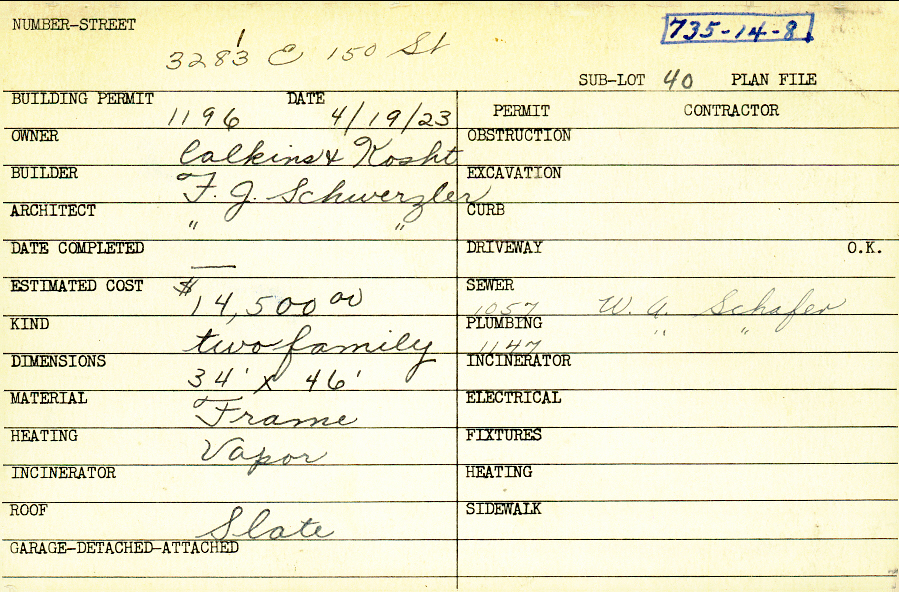 NUMBER-STREET
735-14-8
3283 E 150 St
1
SUB-LOT 40 PLAN FILE
BUILDING PERMIT 1196 DATE 4/19/23
PERMIT CONTRACTOR
OWNER Calkins & Kosht
OBSTRUCTION
BUILDER F. J. Schwerzler
EXCAVATION
ARCHITECT " "
CURB
DATE COMPLETED —
DRIVEWAY O.K.
ESTIMATED COST $14,500 00
SEWER 1057 W. A. Schafer
KIND two family
PLUMBING 1147 " "
DIMENSIONS 34' x 46'
INCINERATOR
MATERIAL Frame
ELECTRICAL
HEATING Vapor
FIXTURES
INCINERATOR
HEATING
ROOF Slate
SIDEWALK
GARAGE-DETACHED-ATTACHED